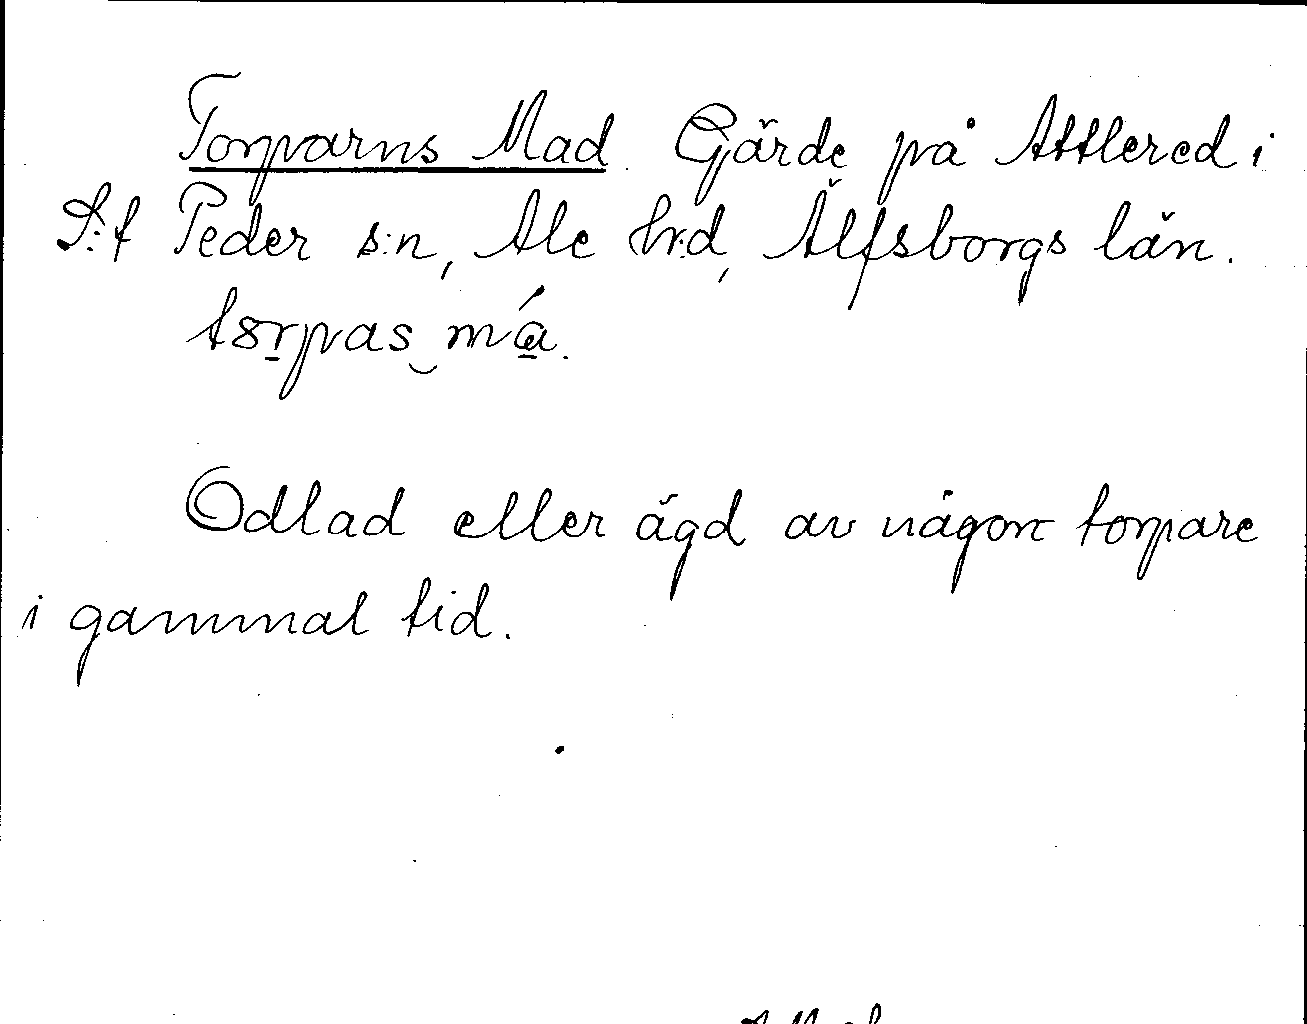 Torparns Mad. Gärde på Attlered i
S:t Peder s:n, Ale hr:d, Älfsborgs län.
torpas‿má.
Odlad eller ägd av någon torpare
i gammal tid.